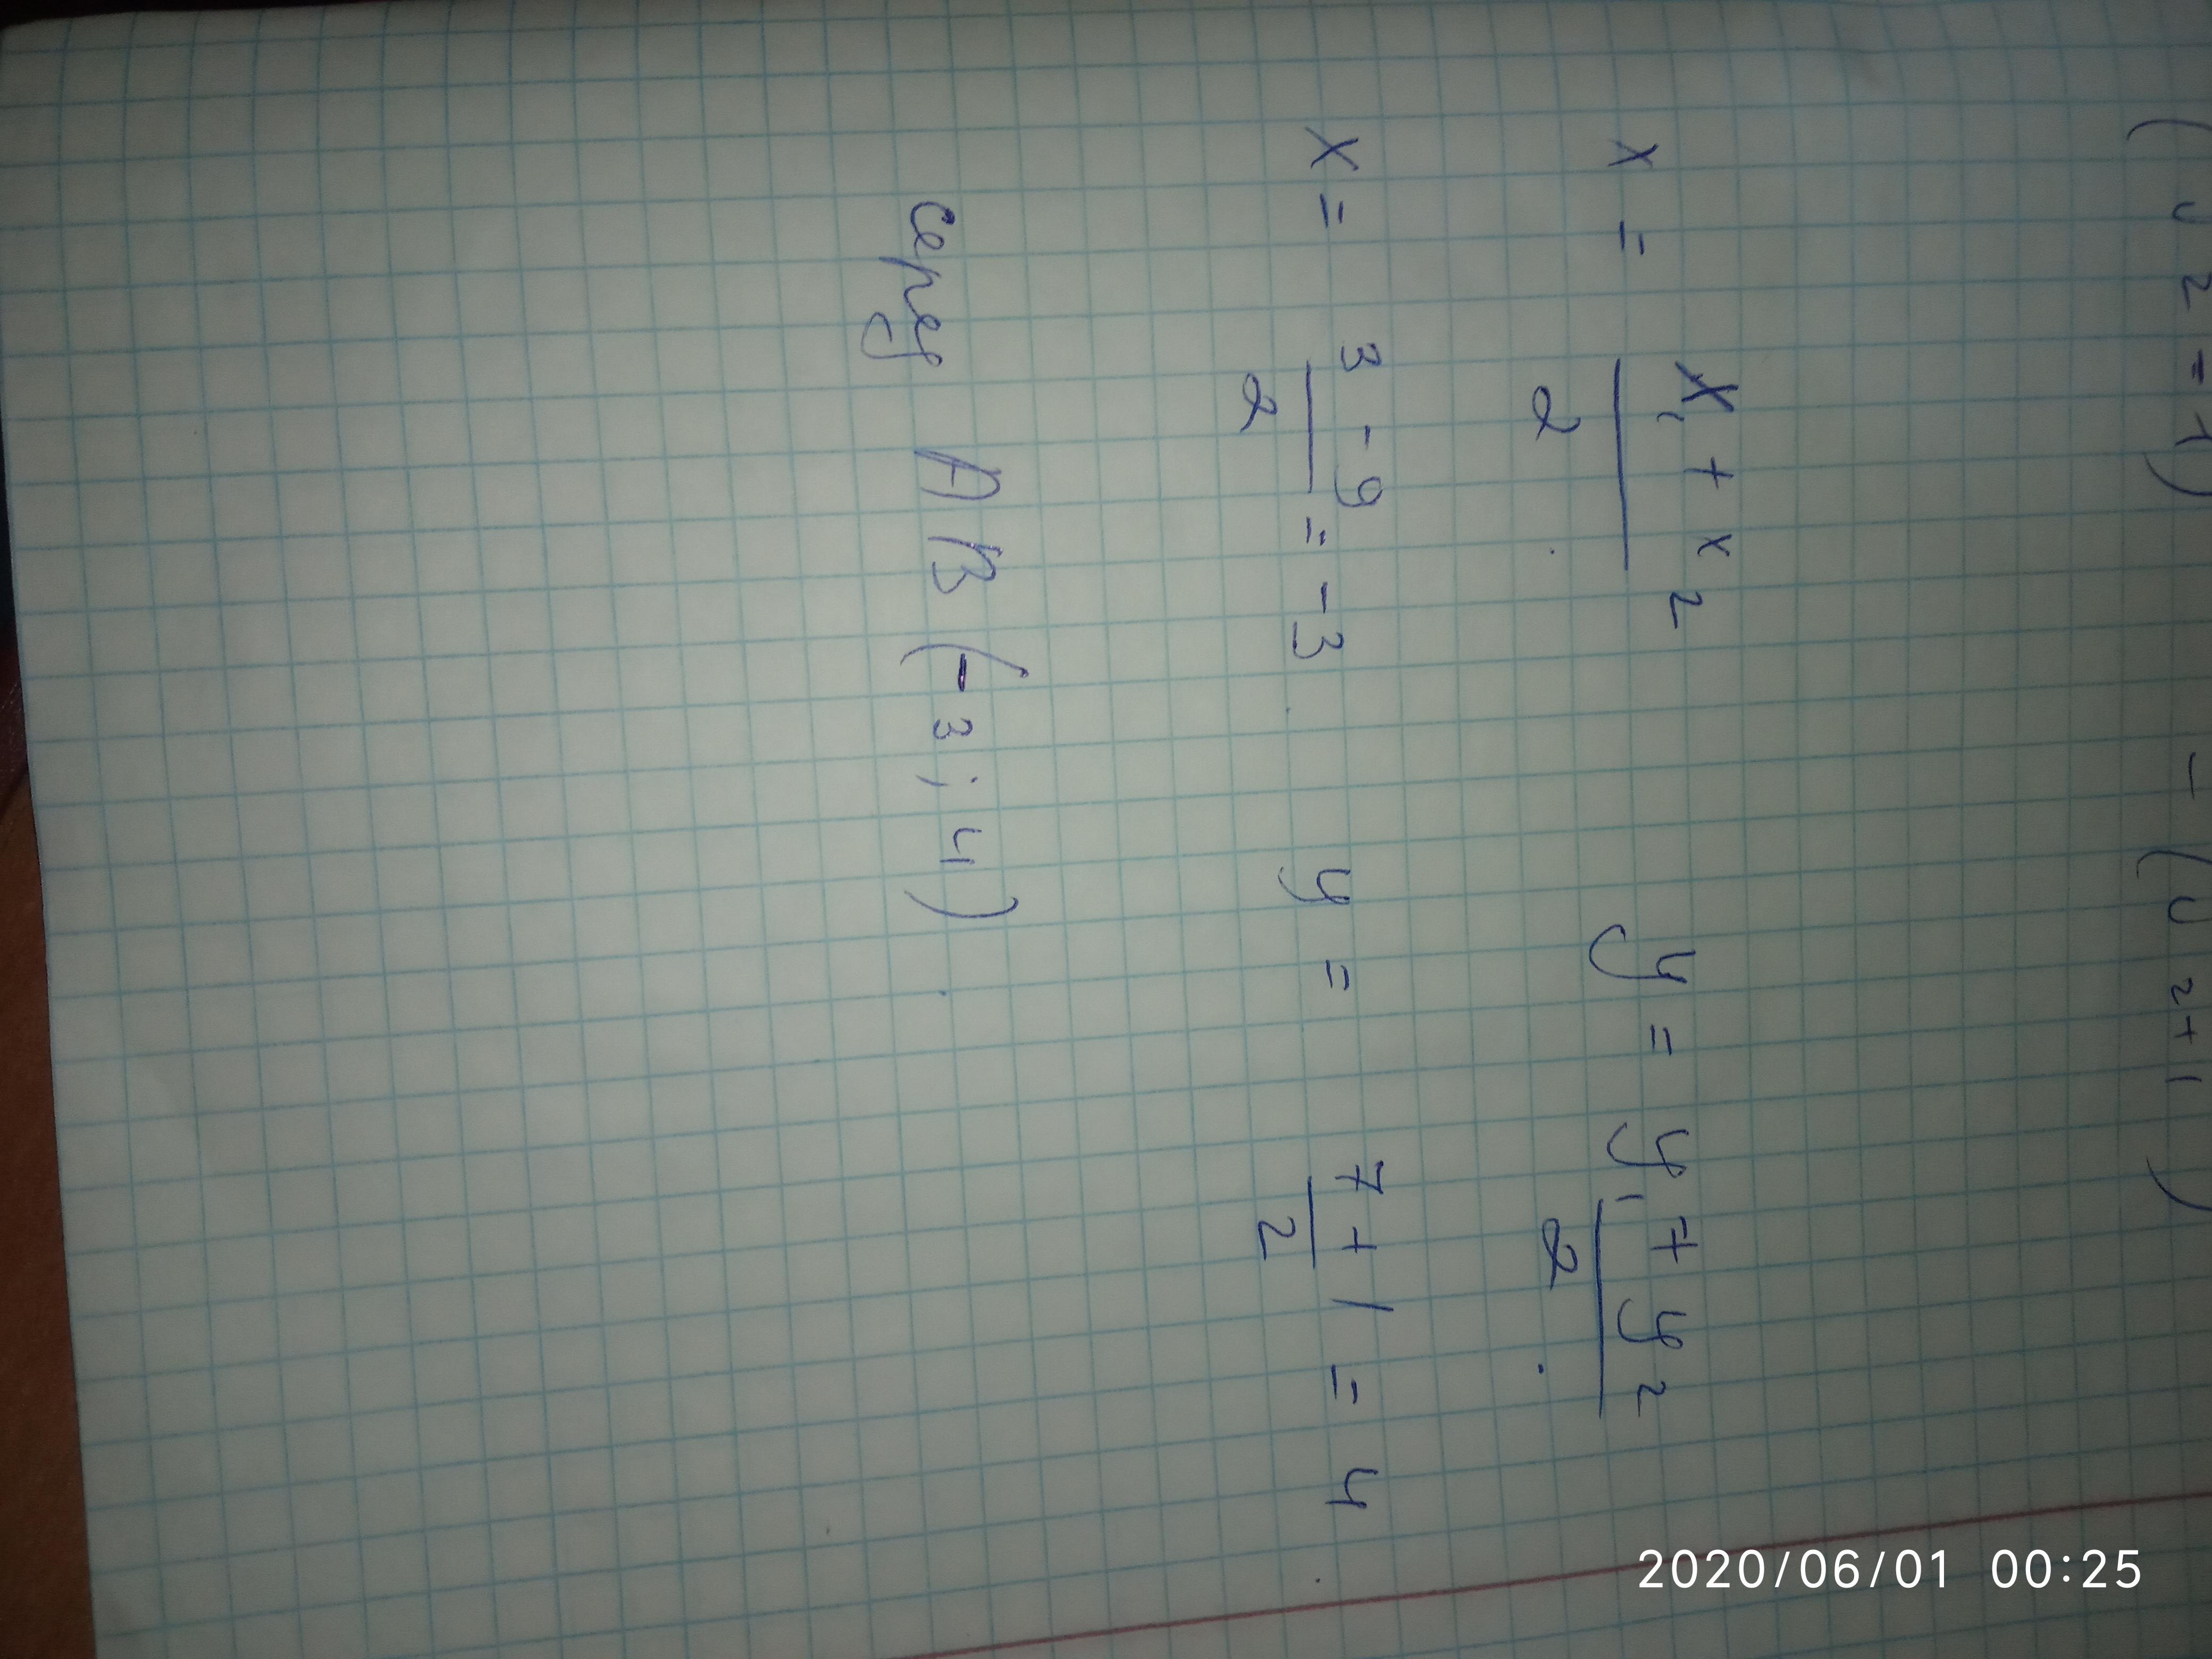 x = (x₁ + x₂)/2 y = (y₁ + y₂)/2
x = (3 - 9)/2 = -3 y = (7 + 1)/2 = 4
AB (-3; 4)
2020/06/01 00:25